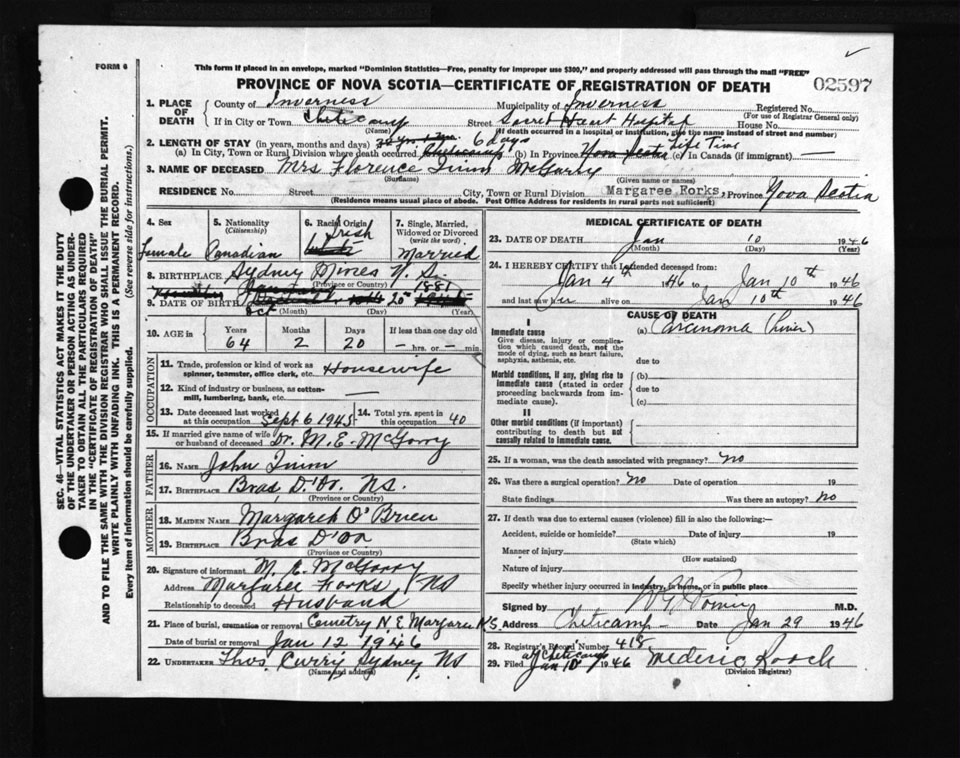 FORM 6
This form if placed in an envelope, marked "Dominion Statistics—Free, penalty for improper use $300," and properly addressed will pass through the mail "FREE"
PROVINCE OF NOVA SCOTIA—CERTIFICATE OF REGISTRATION OF DEATH
02597
1. PLACE OF DEATH
County of Inverness Municipality of Inverness Registered No.
(For use of Registrar General only)
If in City or Town Cheticamp Street Sacret Heart Hospital House No.
(Name) (If death occurred in a hospital or institution, give the name instead of street and number)
2. LENGTH OF STAY (in years, months and days) 6 days Life Time
(a) In City, Town or Rural Division where death occurred Cheticamp (b) In Province Nova Scotia (c) In Canada (if immigrant) —
3. NAME OF DECEASED Mrs Florence McGarry
(Surname) (Given name or names)
RESIDENCE No. Street City, Town or Rural Division Margaree Forks, Province Nova Scotia
(Residence means usual place of abode. Post Office Address for residents in rural parts not sufficient)
4. Sex Female
5. Nationality (Citizenship) Canadian
6. Racial Origin Irish
7. Single, Married, Widowed or Divorced (write the word) Married
8. BIRTHPLACE Sydney Mines N.S.
(Province or Country)
9. DATE OF BIRTH Oct 20 1881
(Month) (Day) (Year)
10. AGE in Years 64 Months 2 Days 20 If less than one day old — hrs. or — min.
OCCUPATION
11. Trade, profession or kind of work as spinner, teamster, office clerk, etc. Housewife
12. Kind of industry or business, as cotton-mill, lumbering, bank, etc. —
13. Date deceased last worked at this occupation Sept 6 1945
14. Total yrs. spent in this occupation 40
15. If married give name of wife or husband of deceased Dr. M. E. McGarry
FATHER
16. NAME John
17. BIRTHPLACE Bras D'Or. NS.
(Province or Country)
MOTHER
18. MAIDEN NAME Margaret O'Brien
19. BIRTHPLACE Bras D'Or
(Province or Country)
20. Signature of informant M. E. McGarry
Address Margaree Forks, NS
Relationship to deceased Husband
21. Place of burial, cremation or removal Cemetry N.E. Margaree N.S.
Date of burial or removal Jan 12 1946
22. UNDERTAKER Thos. Curry Sydney NS
(Name and address)
MEDICAL CERTIFICATE OF DEATH
23. DATE OF DEATH Jan 10 1946
(Month) (Day) (Year)
24. I HEREBY CERTIFY that I attended deceased from:
Jan 4th 1946 to Jan 10th 1946
and last saw her alive on Jan 10th 1946
CAUSE OF DEATH
I
Immediate cause (a) Carcinoma (Liver)
Give disease, injury or complication which caused death, not the mode of dying, such as heart failure, asphyxia, asthenia, etc.
due to
Morbid conditions, if any, giving rise to immediate cause (stated in order proceeding backwards from immediate cause).
(b)
due to
(c)
II
Other morbid conditions (if important) contributing to death but not causally related to immediate cause.
25. If a woman, was the death associated with pregnancy? No
26. Was there a surgical operation? No Date of operation 19
State findings Was there an autopsy? No
27. If death was due to external causes (violence) fill in also the following:—
Accident, suicide or homicide? Date of injury 19
(State which)
Manner of injury
(How sustained)
Nature of injury
Specify whether injury occurred in industry, in home, or in public place
Signed by M.D.
Address Cheticamp — Date Jan 29 1946
28. Registrar's Record Number 418
at Cheticamp
29. Filed Jan 10 1946 Frederic Roach
(Division Registrar)
SEC. 46—VITAL STATISTICS ACT MAKES IT THE DUTY
OF THE UNDERTAKER OR PERSON ACTING AS UNDER-
TAKER TO OBTAIN ALL THE PARTICULARS REQUIRED
IN THE "CERTIFICATE OF REGISTRATION OF DEATH"
AND TO FILE THE SAME WITH THE DIVISION REGISTRAR WHO SHALL ISSUE THE BURIAL PERMIT.
WRITE PLAINLY WITH UNFADING INK. THIS IS A PERMANENT RECORD.
Every item of information should be carefully supplied. (See reverse side for instructions.)